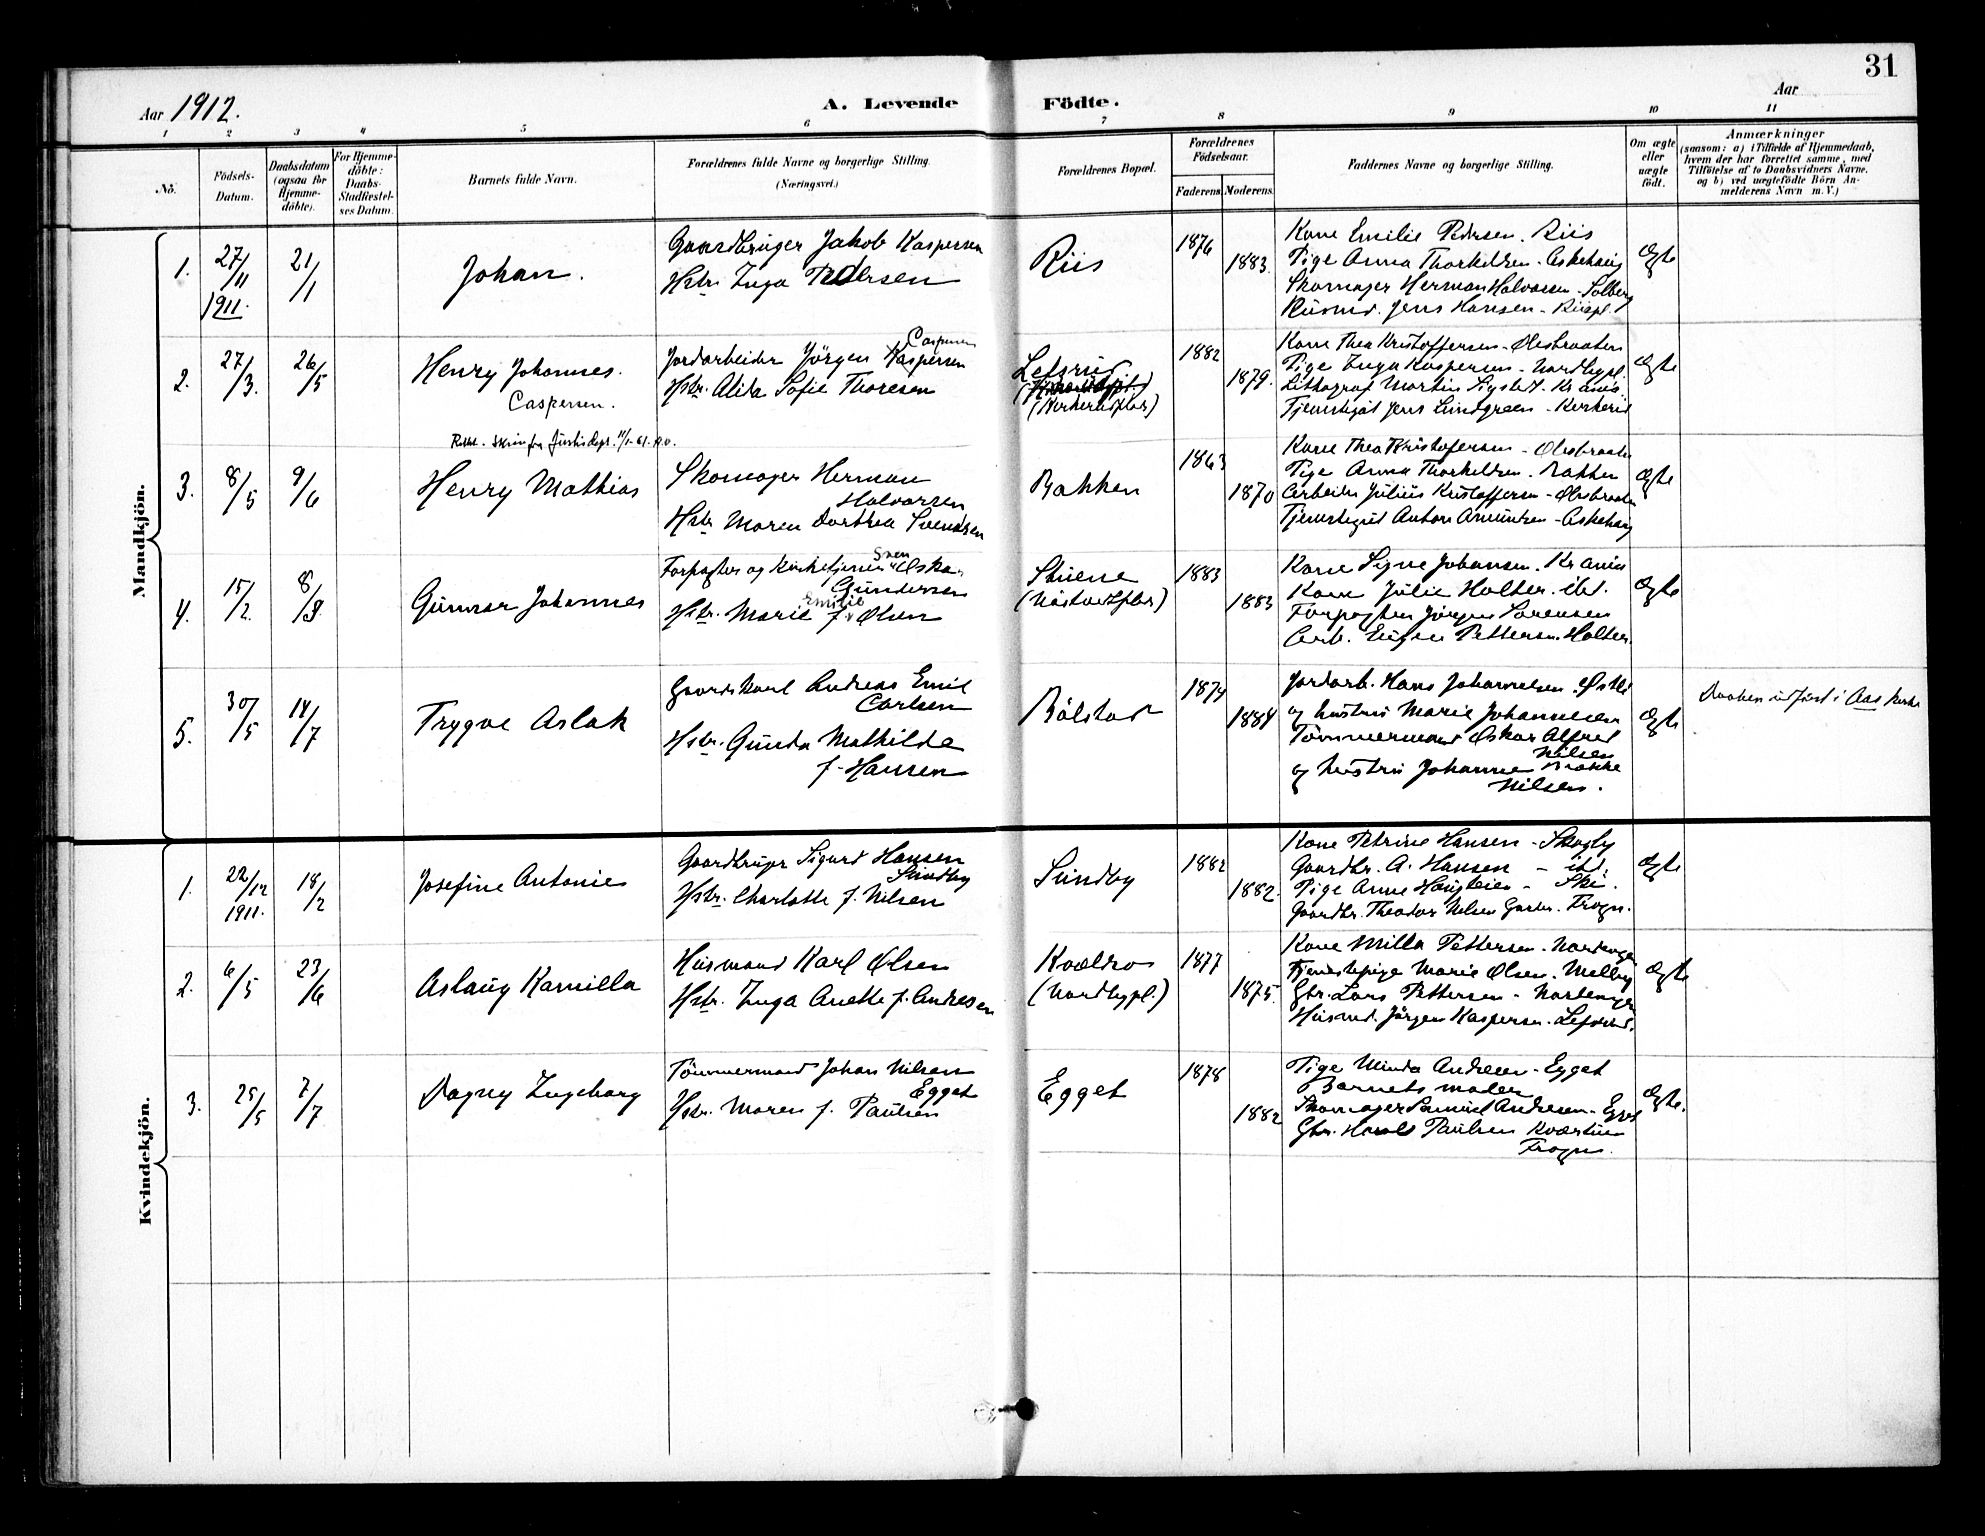 31
Aar 1912.
A. Levende
Födte.
Aar
1 2 3 4 5 6 7 8 9 10 11
Nö.
Födsels-
Datum.
Daabsdatum
(ogsaa for
Hjemme-
döbte).
For Hjemme-
döbte:
Daabs-
Stadfæstel-
ses Datum.
Barnets fulde Navn.
Forældrenes fulde Navne og borgerlige Stilling.
(Næringsvei.)
Forældrenes Bopæl.
Forældrenes
Födselsaar.
Faderens.
Moderens.
Faddernes Navne og borgerlige Stilling.
Om ægte
eller
uægte
födt.
Anmærkninger
(saasom: a) i Tilfælde af Hjemmedaab,
hvem der har forrettet samme, med
Tilföielse af to Daabsvidners Navne,
og b) ved uægtefödte Börn An-
melderens Navn m. V.)
Mandkjön.
1.
27/11
1911.
21/1
Johan.
Gaardbruger Jakob Kaspersen
Hstr. Inga Pedersen
Riis
1876
1883.
Kone Emilie Pedersen. Riis
Pige Anna Thorkeldsen - Askehaug
Skomager Herman Halvorsen - Solberg
Husmd. Jens Hansen - Riispl.
Ægte
2.
27/3.
26/5
Henry Johannes.
Caspersen.
Rettet. skriv fra Justisdept. 11/1-61.
Caspersen
Jordarbeider Jörgen Kaspersen
Hstr. Alida Sofie Thoresen
Lefsrud
(Kirkerudplds)
1882
1879.
Kone Thea Kristoffersen - Olesbraaten
Pige Inga Kaspersen - Nordbypl.
Lithograf Martin Sigstedt. Krania
Tjenestegut Jens Lundgreen - Kirkerud
Ægte
3.
8/5
9/6
Henry Mathias
Skomager Herman
Halvorsen
Hstr Maren Dorthea Svendsen
Bakken
1863
1870
Kone Thea Kristofersen - Olesbraaten
Pige Anna Thorkeldsen. Bakken
Arbeider Julius Kristoffersen - Olesbraaten
Tjenestegut Anton Amundsen - Askehaug
Ægte
4.
15/2.
8/8
Gunnar Johannes
Forpagter og Kirketjener Sven Oskar
Gundersen
Hstr. Marie Emilie f. Olsen
Stuene
1883
1883
Kone Signe Johansen. Krania
Kone Julie Holter. ibd.
Forpagter Jörgen Sörensen
Arb. Eugen Pettersen. Holter.
Ægte
5.
30/5
14/7
Trygve Aslak
Gaardskarl Andreas Emil
Carlsen
Hstr. Gunda Mathilde
f. Hansen
Bölstad
1874
1884
Jordarb. Hans Johannesen. Östli
og hustru Marie Johannesen
Tömmermand Oskar Alfred
Nilsen
og hustru Johanne Brække
Nilsen.
Ægte
Daaben udfört i Aas kirke
Kvindekjön.
1.
22/12
1911.
18/2
Josefine Antonie
Gaardbruger Sigurd Hansen
Sundby
Hstr. Charlotte f. Nilsen
Sundby
1882
1882.
Kone Petrine Hansen - Skogby
Gaardbr. A. Hansen - ibd.
Pige Anne Haugteien - Ski.
Gaardbr. Theodor Nilsen Frogn.
Ægte
2.
6/5
23/6
Aslaug Kamilla
Husmand Karl Olsen
Hstr. Inga Anette f. Andresen
Kvældro
(Nordbypl.)
1877
1875.
Kone Milla Pettersen - Nordenga
Tjenestepige Marie Olsen. Melby
Gbr. Lars Pettersen - Nordenga
Husmd. Jörgen Kaspersen. Lefsrud.
Ægte
3.
25/5
7/7
Dagny Ingeborg
Tömmermand Johan Nilsen
Egget
Hstr. Maren f. Paulsen
Egget
1878
1882
Pige Minda Andresen - Egget
Barnets moder
Skomager Samuel Andresen - Egget
Gbr. Harald Paulsen
Frogn.
Ægte.